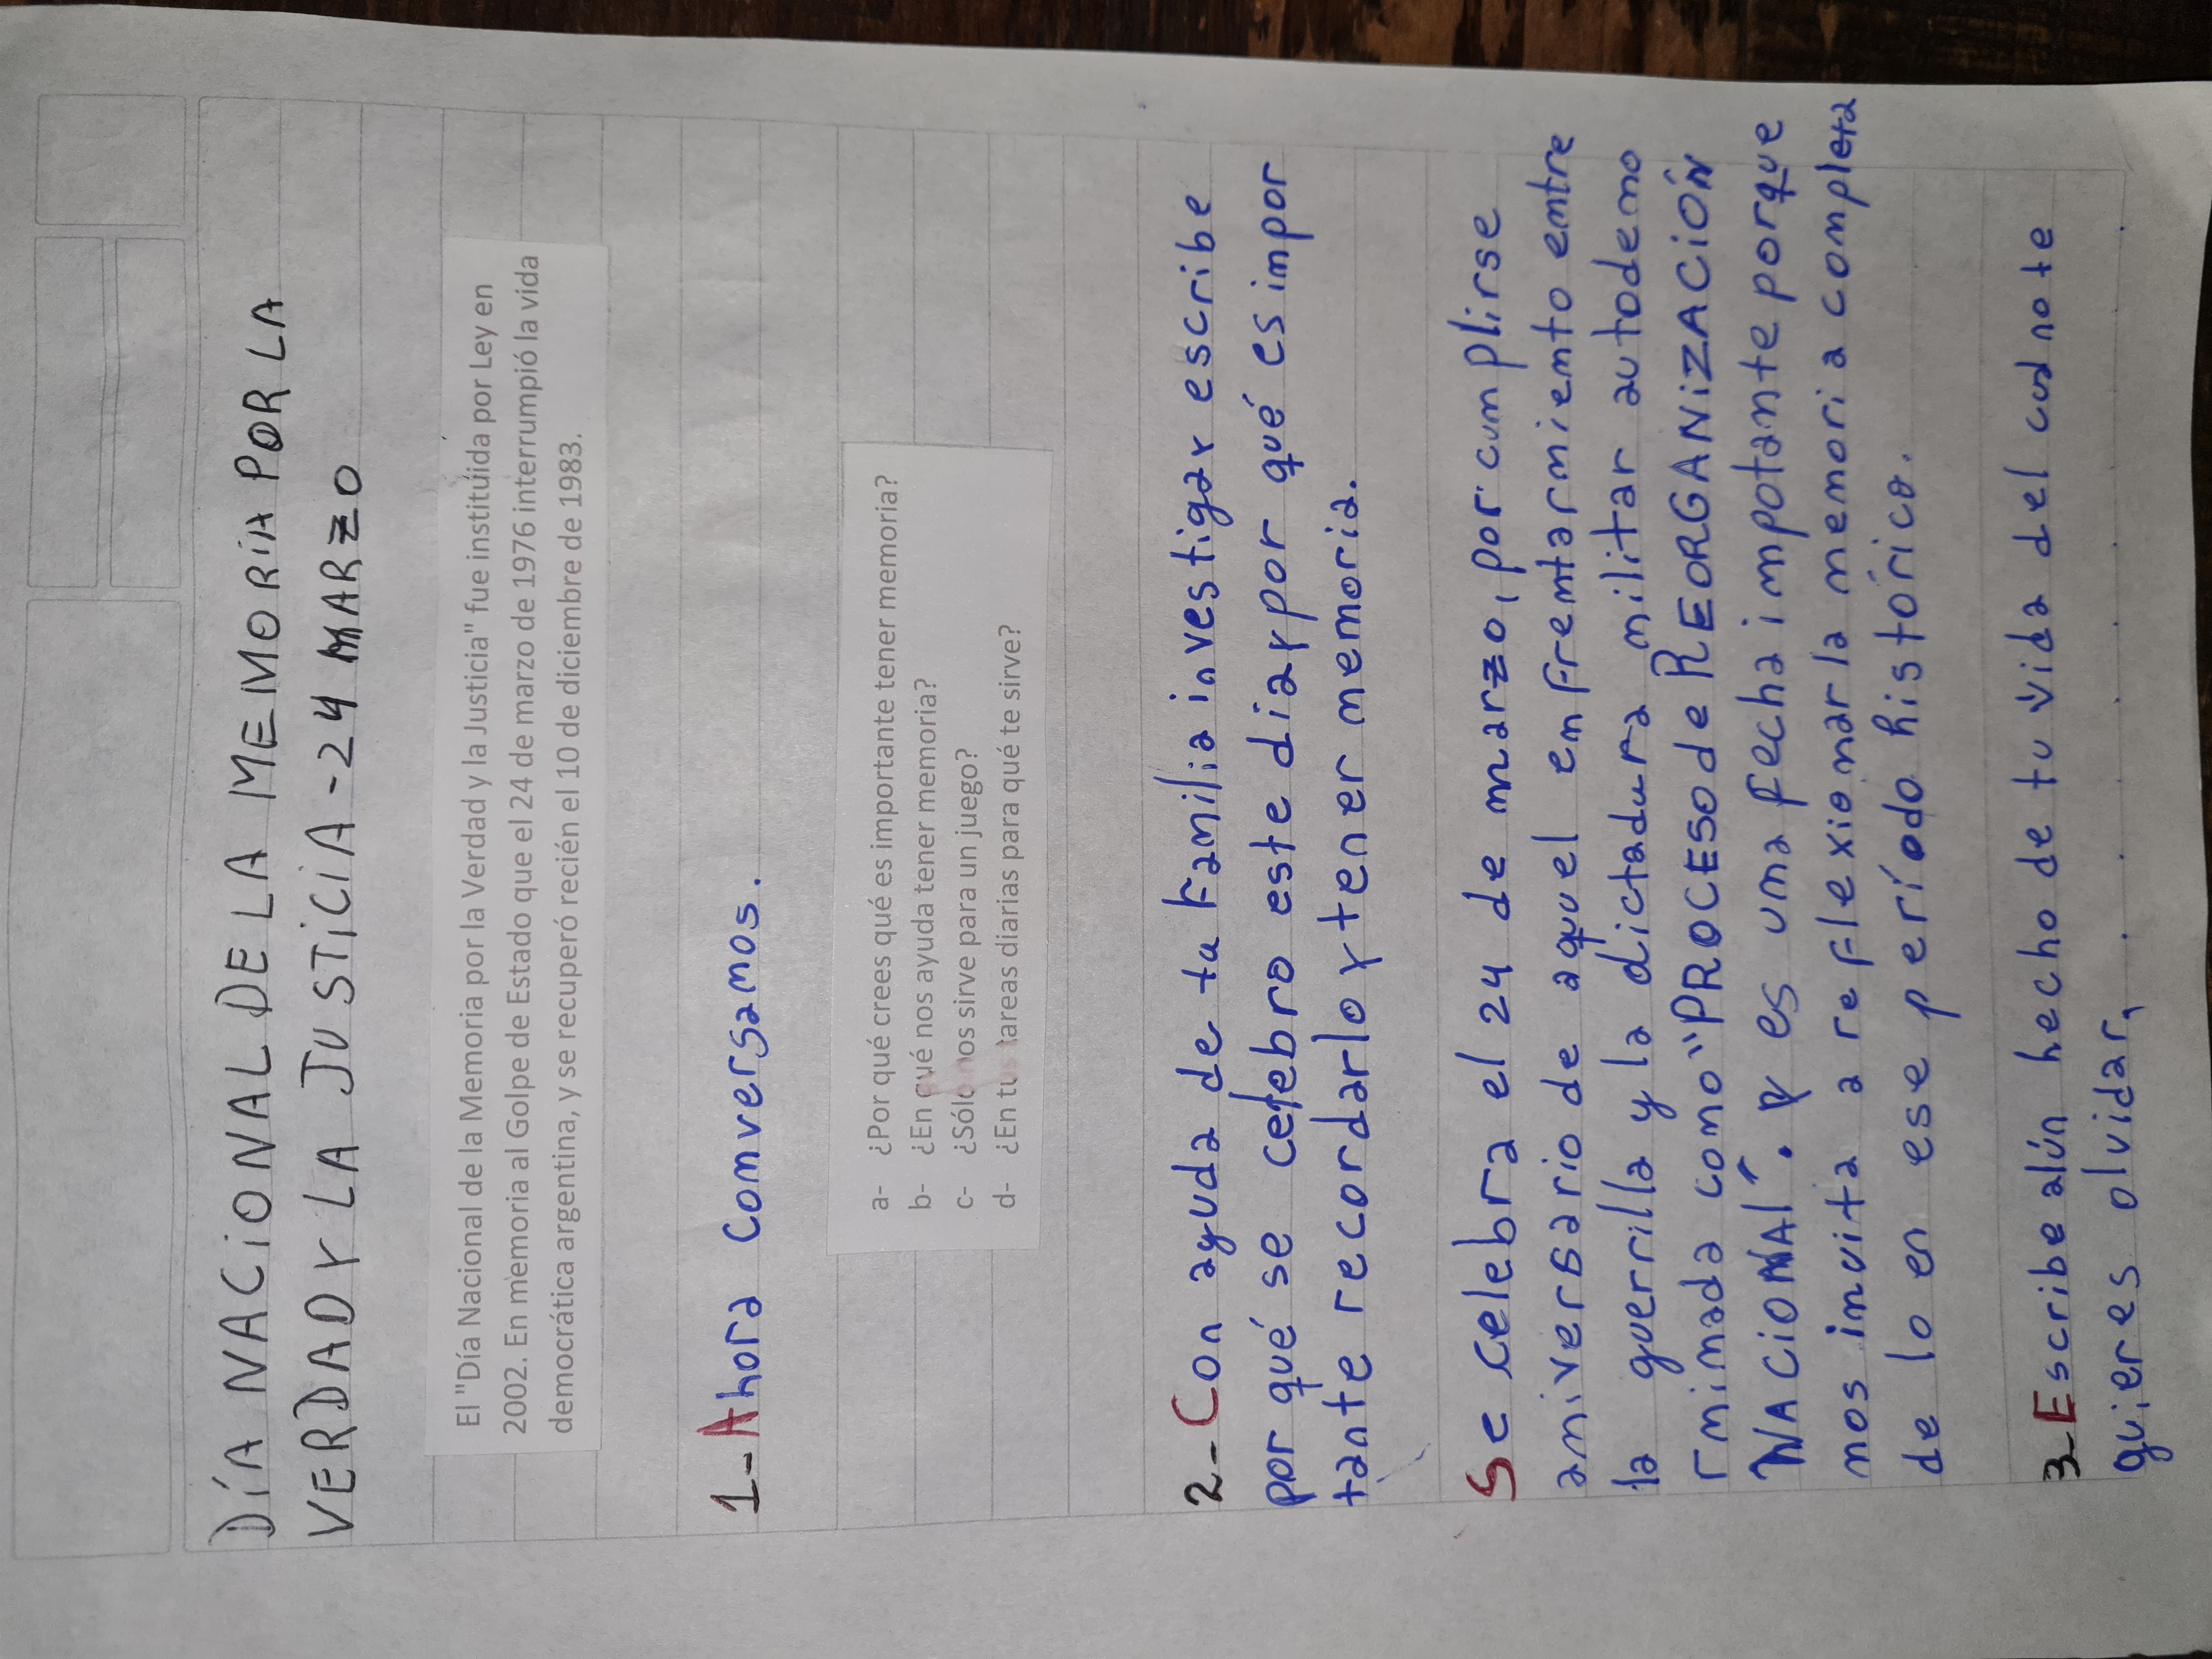 DÍA NACIONAL DE LA MEMORIA POR LA
VERDAD Y LA JUSTICIA - 24 MARZO
El "Día Nacional de la Memoria por la Verdad y la Justicia" fue instituida por Ley en
2002. En memoria al Golpe de Estado que el 24 de marzo de 1976 interrumpió la vida
democrática argentina, y se recuperó recién el 10 de diciembre de 1983.
1-Ahora Comversamos.
a- ¿Por qué crees qué es importante tener memoria?
b- ¿En qué nos ayuda tener memoria?
c- ¿Sólo nos sirve para un juego?
d- ¿En tus tareas diarias para qué te sirve?
2-Con ayuda de tu Familia investigar escribe
por qué se celebro este dia y por qué es impor
tante recordarlo y tener memoria.
Se celebra el 24 de marzo, por cumplirse
amiversario de aquel emfremtarmiemto emtre
la guerrilla y la dictadura militar autodemo
rmimada como "PROCESO de REORGANIZACIÓN
NACIONAl". y es uma fecha impotamte porque
mos imvita a reflexiomar la memoria completa
de lo en ese período histórico.
3-Escribe alún hecho de tu vida del cual no te
quieres olvidar,
. . . . . . . .